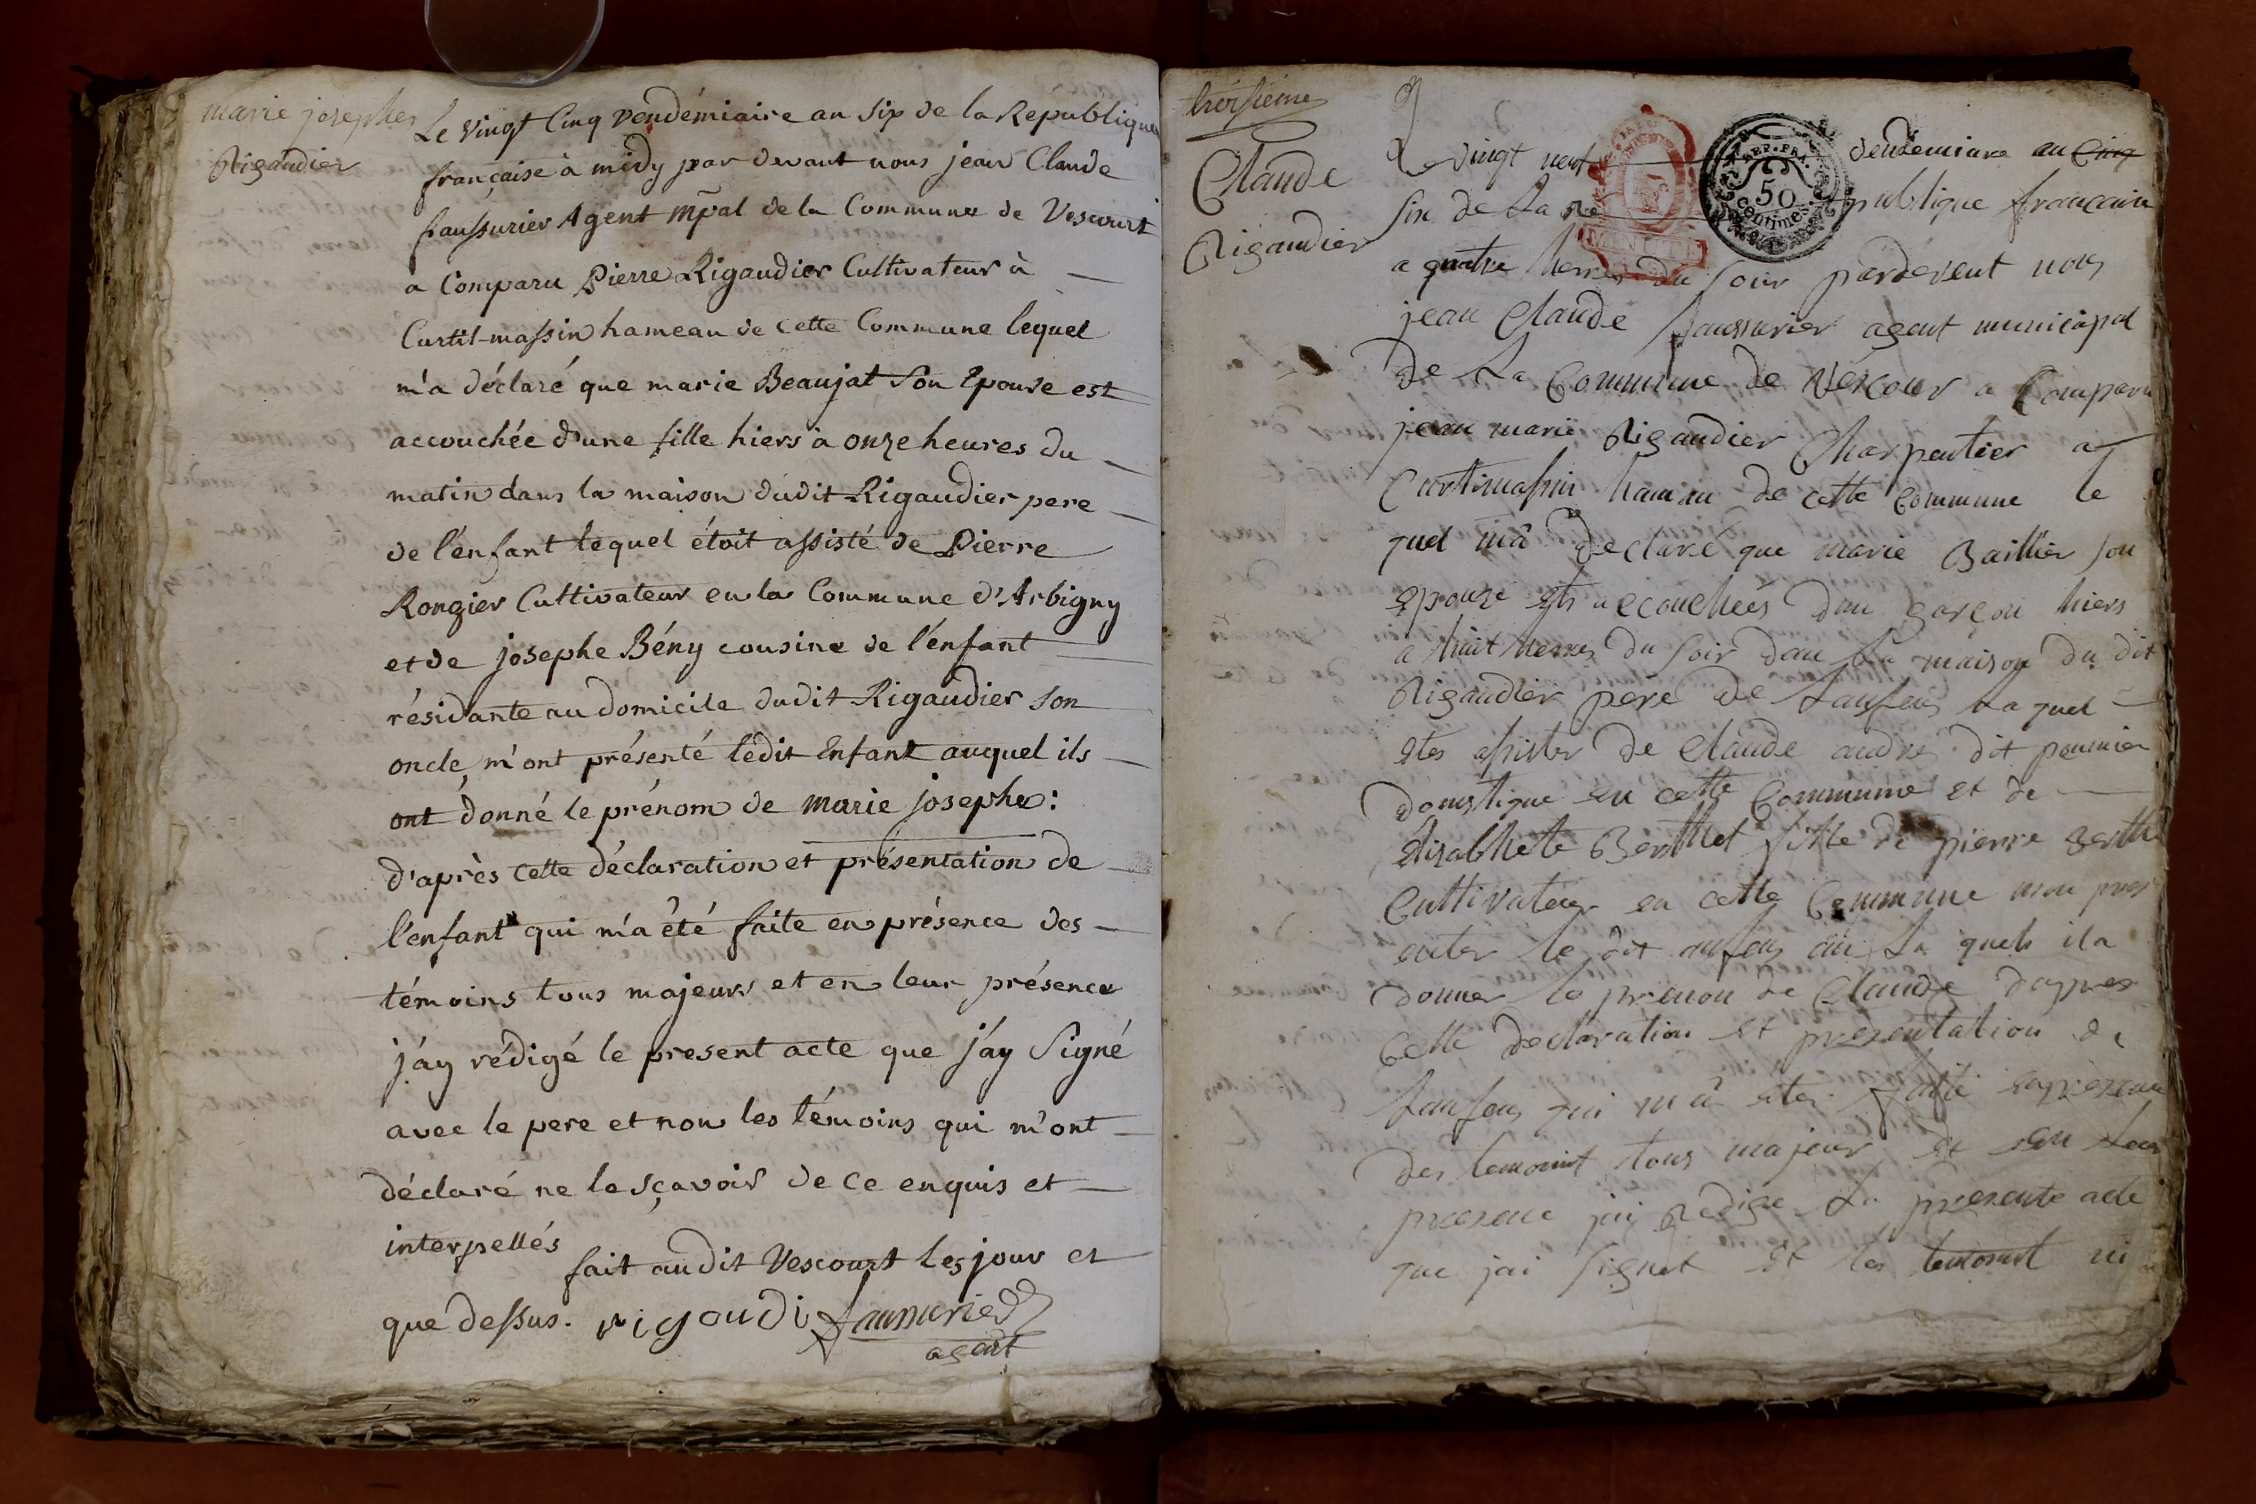 marie josephe
Rigaudier
Le vingt Cinq vendémiaire an Six de la Republique
française à midy par devant nous jean Claude
faussurier Agent mpal de la Commune de Vescourt
a Comparu Pierre Rigaudier Cultivateur à
Curtil-massin hameau de cette Commune lequel
m'a déclaré que marie Beaujat Son Epouse est
accouchée d'une fille hiers à onze heures du
matin dans la maison dudit Rigaudier pere
de l'enfant lequel étoit assisté de Pierre
Rongier Cultivateur en la Commune d'Arbigny
et de josephe Bény cousine de l'enfant
résidante au domicile dudit Rigaudier son
oncle, m'ont présenté ledit Enfant auquel ils
ont donné le prénom de marie josephe:
d'après cette déclaration et présentation de
l'enfant qui m'a été faite en présence des
témoins tous majeurs et en leur présence
j'ay rédigé le present acte que j'ay Signé
avec le pere et non les témoins qui m'ont
déclaré ne le sçavoir de ce enquis et
interpellés
fait audit Vescourt les jour et
que dessus. rigoudi faussurier
agent
troisieme
Claude
Rigaudier
Le vingt neuf vendemiare an Cinq
six de La Republique francaise
REP. FRA.
50
centimes
a quatre heures du soir pardevent nous
jean Claude faussurier agent municipal
de La Commune de Vescour a Comparu
jean marie Rigaudier Charpentier a
Curtimassin hamau de cette Commune le
quel m'a declaré que marie Baillier son
epouze ets acouchées dun garçon hiers
a huit heures du soir dan La maison du dit
Rigaudier pere de Lanfens La quel
etes assister de Claude andre dit poumier
domstique en cette Commune et de
Elisabhete Berthet fille de pierre Berthe
Cultivateur en cette Commune mon pres
enter le dit anfens au La quels il a
donner le prenon de Claude dappres
Cette declaration et presentation de
Lanfens qui m'a etes faitte enpresence
des temoinst tous majeur et en Leur
presence jai redige La presente acte
que jai signet et les temoinst ni